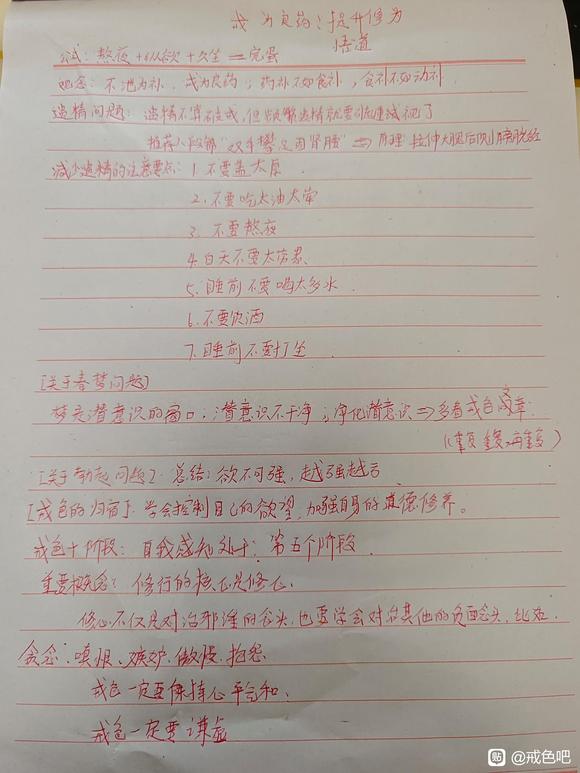 戒为良药：提升修为
悟道
公式：熬夜+纵欲+久坐=完蛋
观念：不泄为补，戒为良药；药补不如食补，食补不如动补。
遗精问题：遗精不算破戒，但频繁遗精就要引起重视了
推荐八段锦"双手攀足固肾腰"⇒原理 拉伸大腿后侧膀胱经
减少遗精的注意要点：1.不要盖太厚
2.不要吃太油太荤
3.不要熬夜
4.白天不要太劳累
5.睡前不要喝太多水
6.不要饮酒
7.睡前不要打坐
[关于春梦问题]
梦是潜意识的窗口；潜意识不干净；净化潜意识⇒多看戒色文章
(重复 重复 再重复)
[关于勃起问题]. 总结：欲不可强，越强越
[戒色的归宿]：学会控制自己的欲望，加强自身的道德修养。
戒色十阶段：自我感知处于：第五个阶段
重要概念：修行的核心是修心
修心不仅是对治邪淫的念头，也要学会对治其他的负面念头，比如
贪念、嗔恨、嫉妒、傲慢、抱怨
戒色一定要保持心平气和、
戒色一定要谦虚
贴 @戒色吧